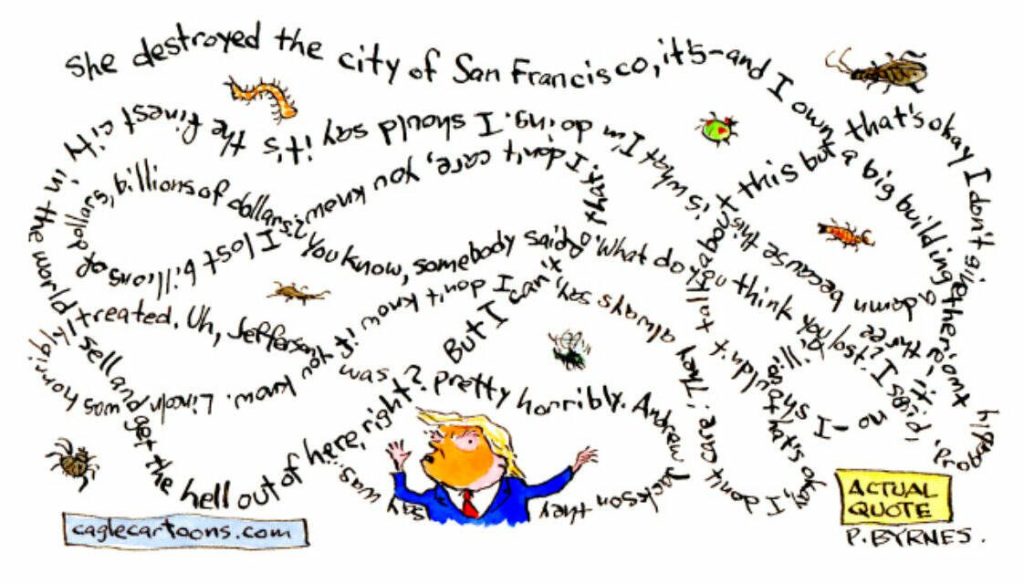 She destroyed the city of San Francisco, it's-and I own a big building there-it's no-I shouldn't talk about this but that's okay I don't give a damn because this is what I'm doing. I should say it's the finest city in the world sell and get the hell out of here, right? But I can't do that. I don't care, you know? I lost billions of dollars, billions of dollars. You know, somebody said, What do you think you lost? I said, three that's okay, I don't care. They always say, I don't know if you know. Lincoln was horribly treated. Uh, Jefferson was pretty horribly. Andrew Jackson they say was...
caglecartoons.com
ACTUAL
QUOTE
P. BYRNES.